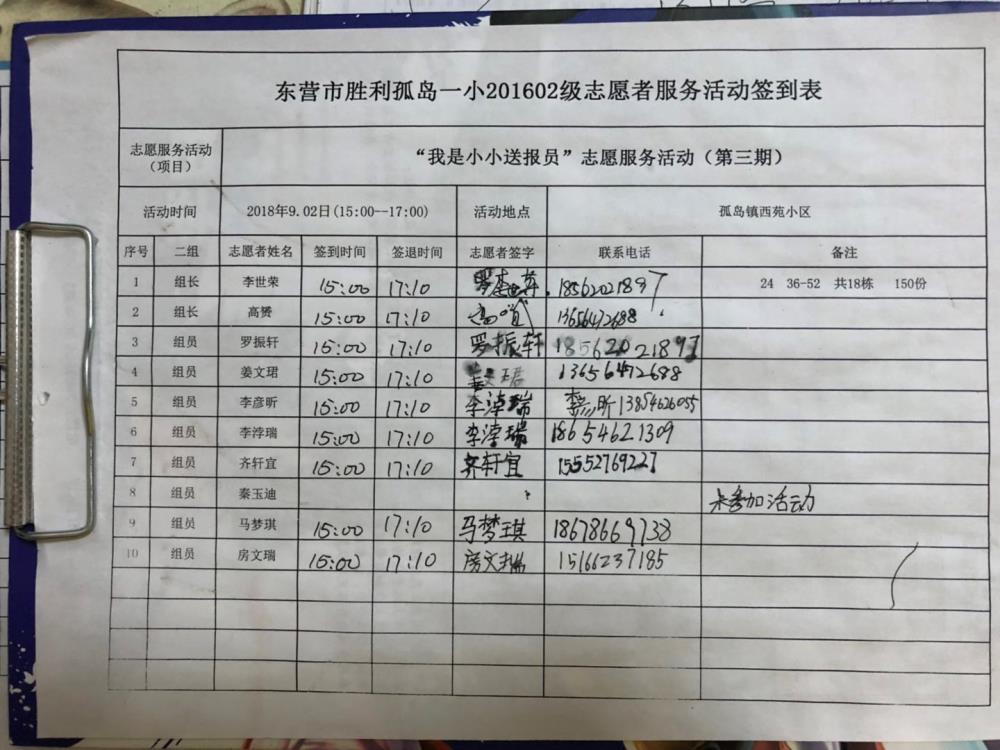 东营市胜利孤岛一小201602级志愿者服务活动签到表
志愿服务活动（项目） “我是小小送报员”志愿服务活动（第三期）
活动时间 2018年9.02日(15:00--17:00) 活动地点 孤岛镇西苑小区
序号 二组 志愿者姓名 签到时间 签退时间 志愿者签字 联系电话 备注
1 组长 李世荣 15:00 17:10 18562021897 24 36-52 共18栋 150份
2 组长 高赟 15:00 17:10 13656472688
3 组员 罗振轩 15:00 17:10 罗振轩 18562021897
4 组员 姜文珺 15:00 17:10 姜文珺 13656472688
5 组员 李彦昕 15:00 17:10 李彦昕 13854626055
6 组员 李浡瑞 15:00 17:10 李浡瑞 18654621309
7 组员 齐轩宜 15:00 17:10 齐轩宜 15552769227
8 组员 秦玉迪 未参加活动
9 组员 马梦琪 15:00 17:10 马梦琪 18678669738
10 组员 房文瑞 15:00 17:10 房文瑞 15166237185